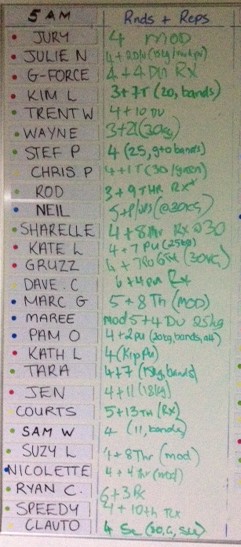 5 AM Rnds + Reps
JURY 4 MOD
JULIE N
G-FORCE 4+4 DU RX
KIM L 3+7T (20, bands)
TRENT W 4+10 DU
WAYNE 3+21 (30kg)
STEF P 4 (25, g+o bands)
CHRIS P 4+1T (30/green)
ROD 3+9 THR RX
NEIL 5+ (@30KG)
SHARELLE 4+8 RX @30
KATE L 4+7 PU (25kg)
GRUZZ 4+7 (30KG)
DAVE.C 6+4 RX
MARC G 5+8 Th (MOD)
MAREE mod 5+4 DU 25kg
PAM O 4+2 PU
KATH L 4 (Kip PU)
TARA 4+7 (15kg, bands)
JEN 4+11 (18kg)
COURTS 5+13 TH (RX)
SAM W 4 (11, bands)
SUZY L 4+8 Thr (mod)
NICOLETTE 4+4 Thr (mod)
RYAN C. 6+3 RX
SPEEDY 4+10th RX
CLAUTO 4